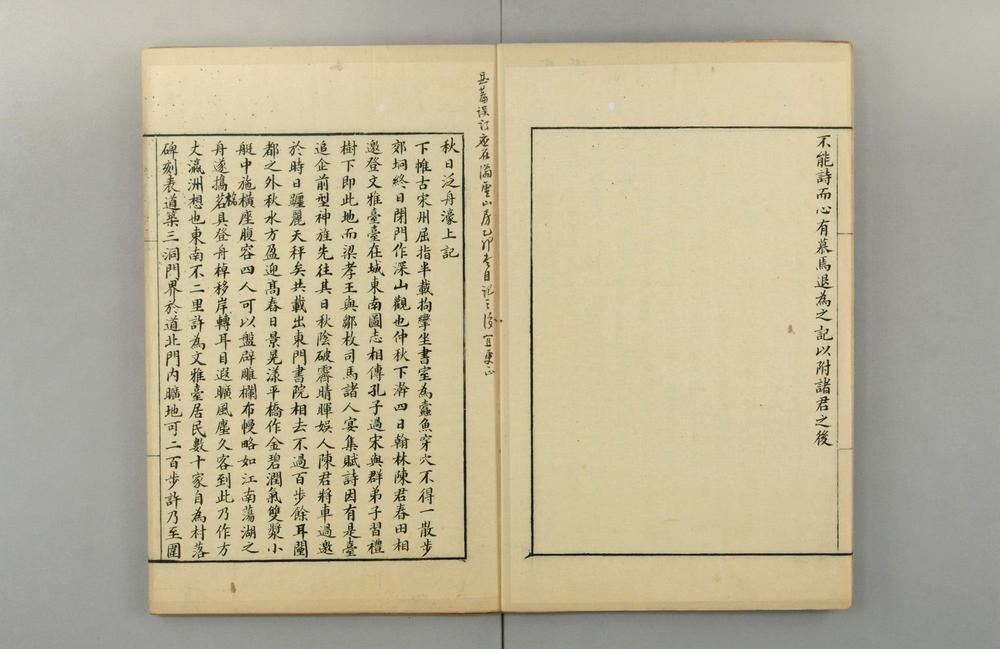 不能詩而心有慕焉退為之記以附諸君之後
是篇誤訂應在滿雲山房乙卯冬自記之後宜更正
秋日泛舟濠上記
下帷古宋州屈指半載拘攣坐書室為蠹魚穿穴不得一散步
郊坰終日閉門作深山觀也仲秋下澣四日翰林陳君春田相
邀登文雅臺臺在城東南圖志相傳孔子過宋與群弟子習禮
樹下即此地而梁孝王與鄒枚司馬諸人宴集賦詩因有是臺
追企前型神旌先往其日秋陰破霽晴暉娛人陳君將車過邀
於時日躔麗天秤矣共載出東門書院相去不過百步餘耳闉
都之外秋水方盈迎高舂日景晃漾平橋作金碧潤氣雙槳小
艇中施橫座腹容四人可以盤辟雕欄布幔略如江南蕩湖之
舟遂攜茗具登舟棹移岸轉耳目遐曠風塵久客到此乃作方
丈瀛洲想也東南不二里許為文雅臺居民數十家自為村落
碑刻表道築三洞門界於道北門內曠地可二百步許乃至圍